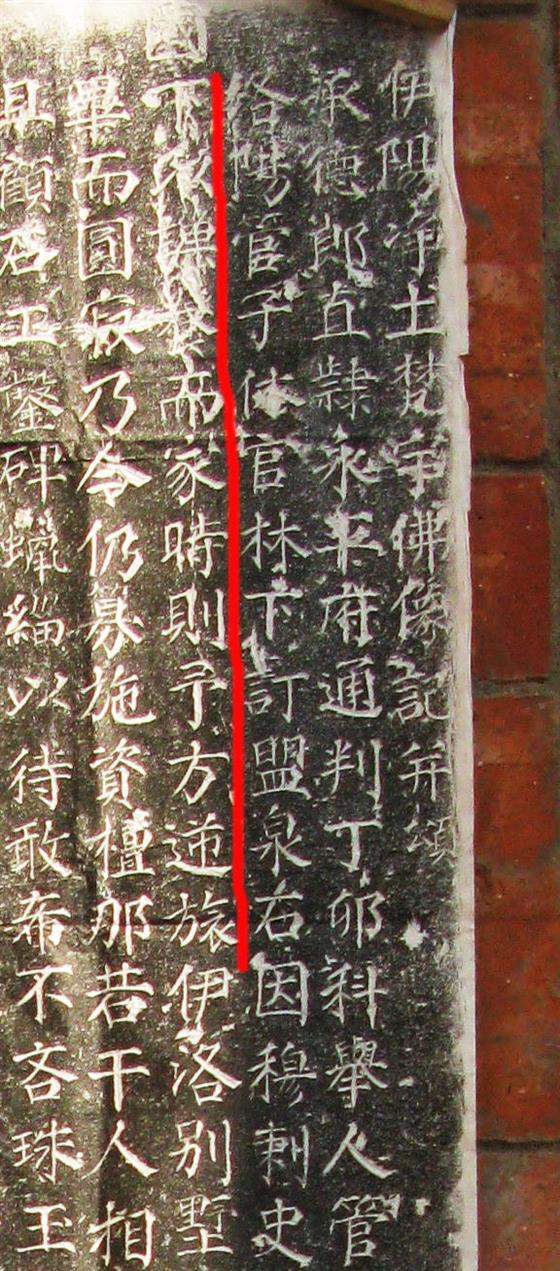 伊陽淨土梵宇佛像記并頌
承德郎直隸永平府通判丁卯科舉人管
陽管子休官林下訂盟泉石因穆刺史
國下課而家時則予方逆旅伊洛別墅
畢而圓寂乃令仍募施資檀那若干人相
見顧召工鏨碑蠟緇以待敢希不吝珠玉